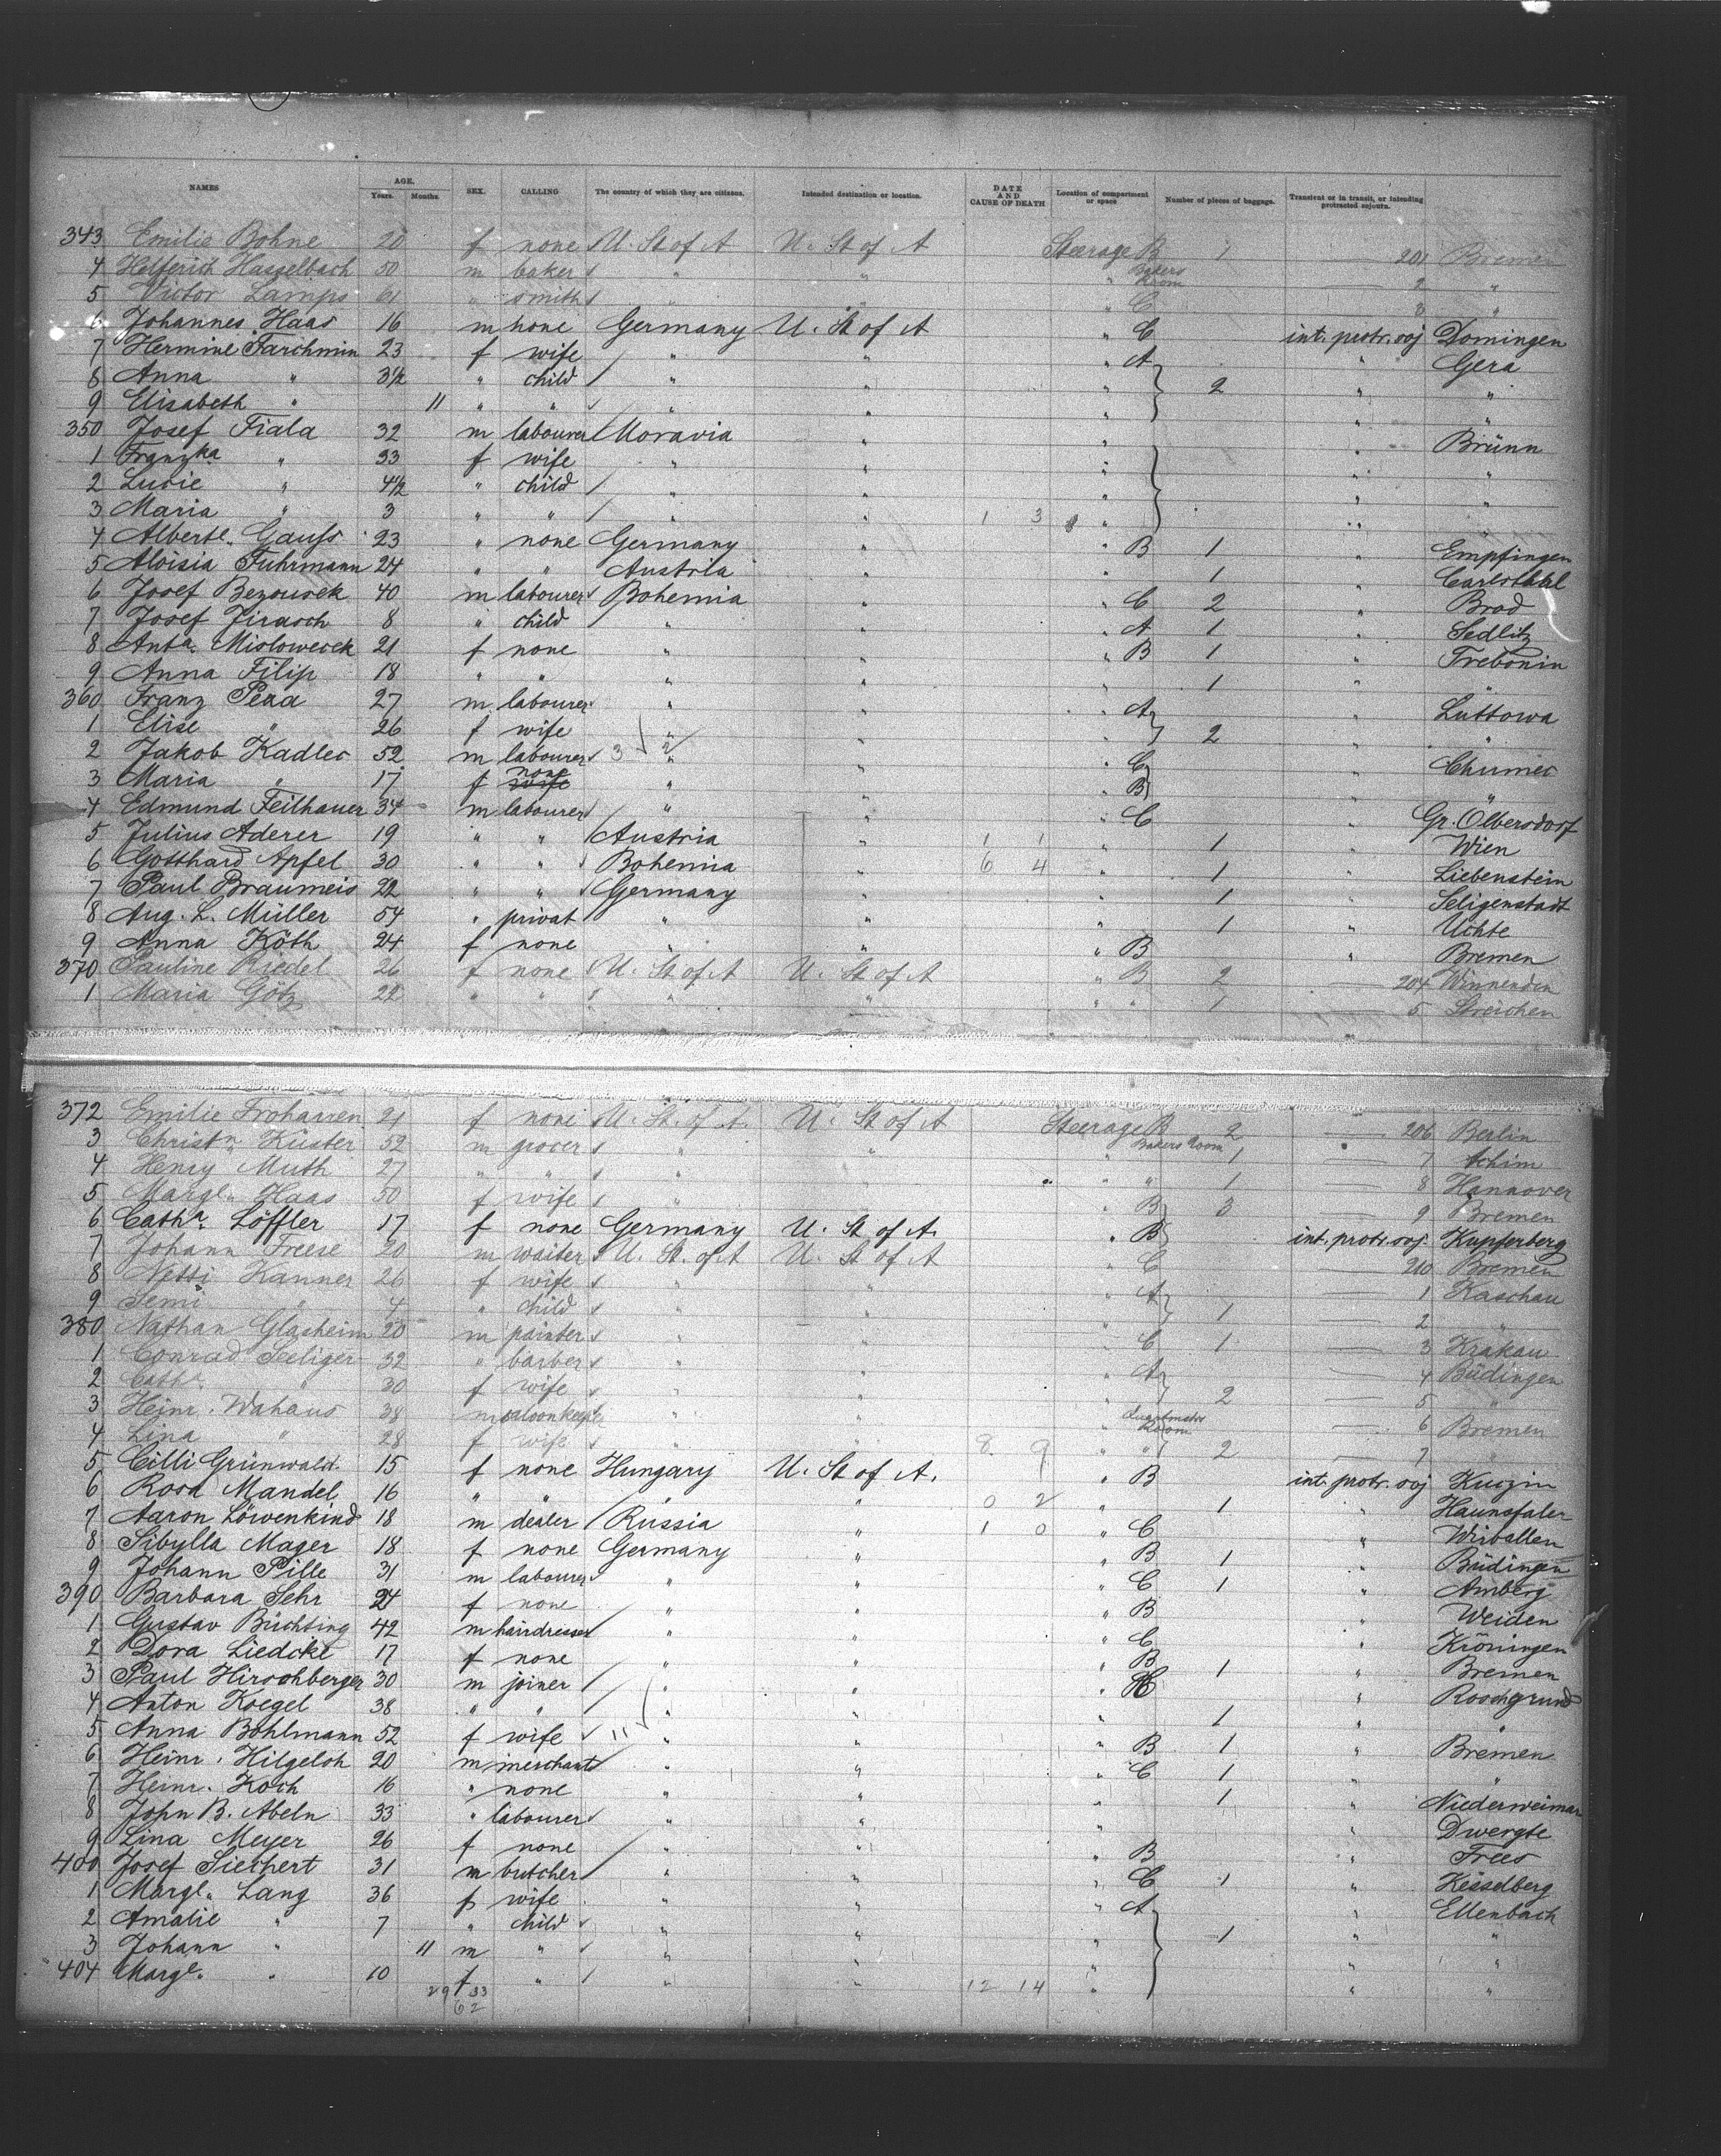 NAMES AGE. Years. Months. SEX. CALLING The country of which they are citizens. Intended destination or location. DATE AND CAUSE OF DEATH Location of compartment or space Number of pieces of baggage. Transient or in transit, or intending protracted sojourn.
343 Emilie Bohne 20 f none U. St of A U. St of A Steerage B 1 — 201 Bremen
4 Helferich Hasselbach 50 m baker " " " Bakers Room — 2 "
5 Victor Lamps 61 " smith " " " C — 3 "
6 Johannes Haas 16 m none Germany U. St of A " C int. protr. soj Domingen
7 Hermine Farchmin 23 f wife " " " A " Gera
8 Anna " 3½ " child " " " 2 " "
9 Elisabeth " 11 " " " " " " "
350 Josef Fiala 32 m labourer Moravia " " " Brünn
1 Franzka " 33 f wife " " " " "
2 Lucie " 4½ " child " " " " "
3 Maria " 3 " " " " 1 3 " " "
4 Alberte. Gauss 23 " none Germany " " B 1 " Empfingen
5 Aloisia Fuhrmann 24 " " Austria " " 1 " Carlsthal
6 Josef Bezousek 40 m labourer Bohemia " " C 2 " Brod
7 Josef Jirasch 8 " child " " " A 1 " Sedlitz
8 Anta. Mislowecek 21 f none " " " B 1 " Trebonin
9 Anna Filip 18 " " " " " 1 " "
360 Franz Pexa 27 m labourer " " " A " Luttowa
1 Elise " 26 f wife " " " 2 " "
2 Jakob Kadlec 52 m labourer 3 2 " " " C " Chumec
3 Maria " 17 f none wife " " " B " "
4 Edmund Feilhauer 34 m labourer " " " C " Gr. Olbersdorf
5 Julius Aderer 19 " " Austria " 1 1 " 1 " Wien
6 Gotthard Apfel 30 " " Bohemia " 6 4 " 1 " Liebenstein
7 Paul Braumeis 22 " " Germany " " 1 " Seligenstadt
8 Aug. L. Müller 54 " privat " " " 1 " Uchte
9 Anna Köth 24 f none " " " B " Bremen
370 Pauline Riedel 26 f none U. St of A U. St of A " B 2 — 204 Winnenden
1 Maria Götz 22 " " " " " " 1 — 5 Streichen
372 Emilie Froharren 21 f none U. St. of A. U. St of A Steerage B 2 — 206 Berlin
3 Christn. Küster 52 m grocer " " Bakers Room 1 — 7 Achim
4 Henry Muth 27 " " " " " " 1 — 8 Hannover
5 Margte. Haas 50 f wife " " " B 3 — 9 Bremen
6 Catha. Löffler 17 f none Germany U. St of A. " B int. protr. soj. Kupferberg
7 Johann Freese 20 m waiter U. St. of A U. St of A " C — 210 Bremen
8 Netti Kanner 26 f wife " " " A — 1 Kaschau
9 Semi " 4 " child " " " 1 — 2 "
380 Nathan Glasheim 20 m painter " " " C 1 — 3 Krakau
1 Conrad Seeliger 32 " barber " " " A — 4 Büdingen
2 Catha. " 30 f wife " " " 2 — 5 "
3 Heinr. Wahaus 38 m saloonkeeper " " " Quartmstrs Room — 6 Bremen
4 Lina " 28 f wife " " 8 9 " " 2 — 7 "
5 Cilli Grünwald. 15 f none Hungary U. St of A. " B int. protr. soj Kuczin
6 Rosa Mandel 16 " " " " 0 2 " 1 " Haunsfaler
7 Aaron Löwenkind 18 m dealer Russia " 1 0 " C " Wirballen
8 Sibylla Mager 18 f none Germany " " B 1 " Büdingen
9 Johann Pille 31 m labourer " " " C 1 " Amberg
390 Barbara Sehr 24 f none " " " B " Weiden
1 Gustav Büchting 42 m hairdresser " " " C " Kröningen
2 Dora Liedcke 17 f none " " " B 1 " Bremen
3 Paul Hirschberger 30 m joiner " " " C " Roschgrund
4 Anton Koegel 38 " " " " " 1 " "
5 Anna Bohlmann 52 f wife 11 " " " B 1 " Bremen
6 Heinr. Hilgeloh 20 m merchant " " " C 1 " "
7 Heinr. Koch 16 " none " " " 1 " Niederweimar
8 John B. Abeln 33 " labourer " " " " Dwergte
9 Lina Meyer 26 f none " " " B " Frees
400 Josef Siechert 31 m butcher " " " C 1 " Kesselberg
1 Margte. Lang 36 f wife " " " A " Ellenbach
2 Amalie " 7 " child " " " 1 " "
3 Johann " 11 m " " " " " "
404 Margte. " 10 f " " " 12 14 " " "
29 33
62